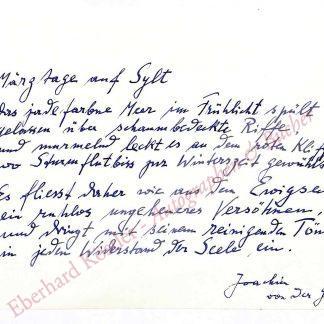 Märztage auf Sylt
Das jadefarbne Meer im Frühlicht spült
gelassen über schaumbedeckte Riffe
und murmelnd leckt es an dem roten Kliff
wo Sturmflutbiss zur Winterszeit gewühlt
Es fliesst daher wie aus den Ewigkei
ein ruhlos ungeheueres Versöhnen,
und dringt mit seinem reinigenden Tön
in jeden Widerstand der Seele ein.
Joachim
von der G
Eberhard Köstler Autographen